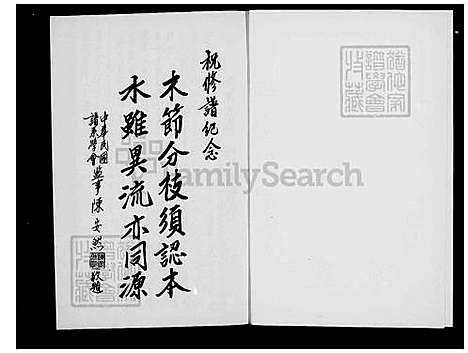 祝修譜紀念
木節分枝須認本
水雖異流亦同源
中華民國
譜系學會
監事 陳安然 敬題
FamilySearch